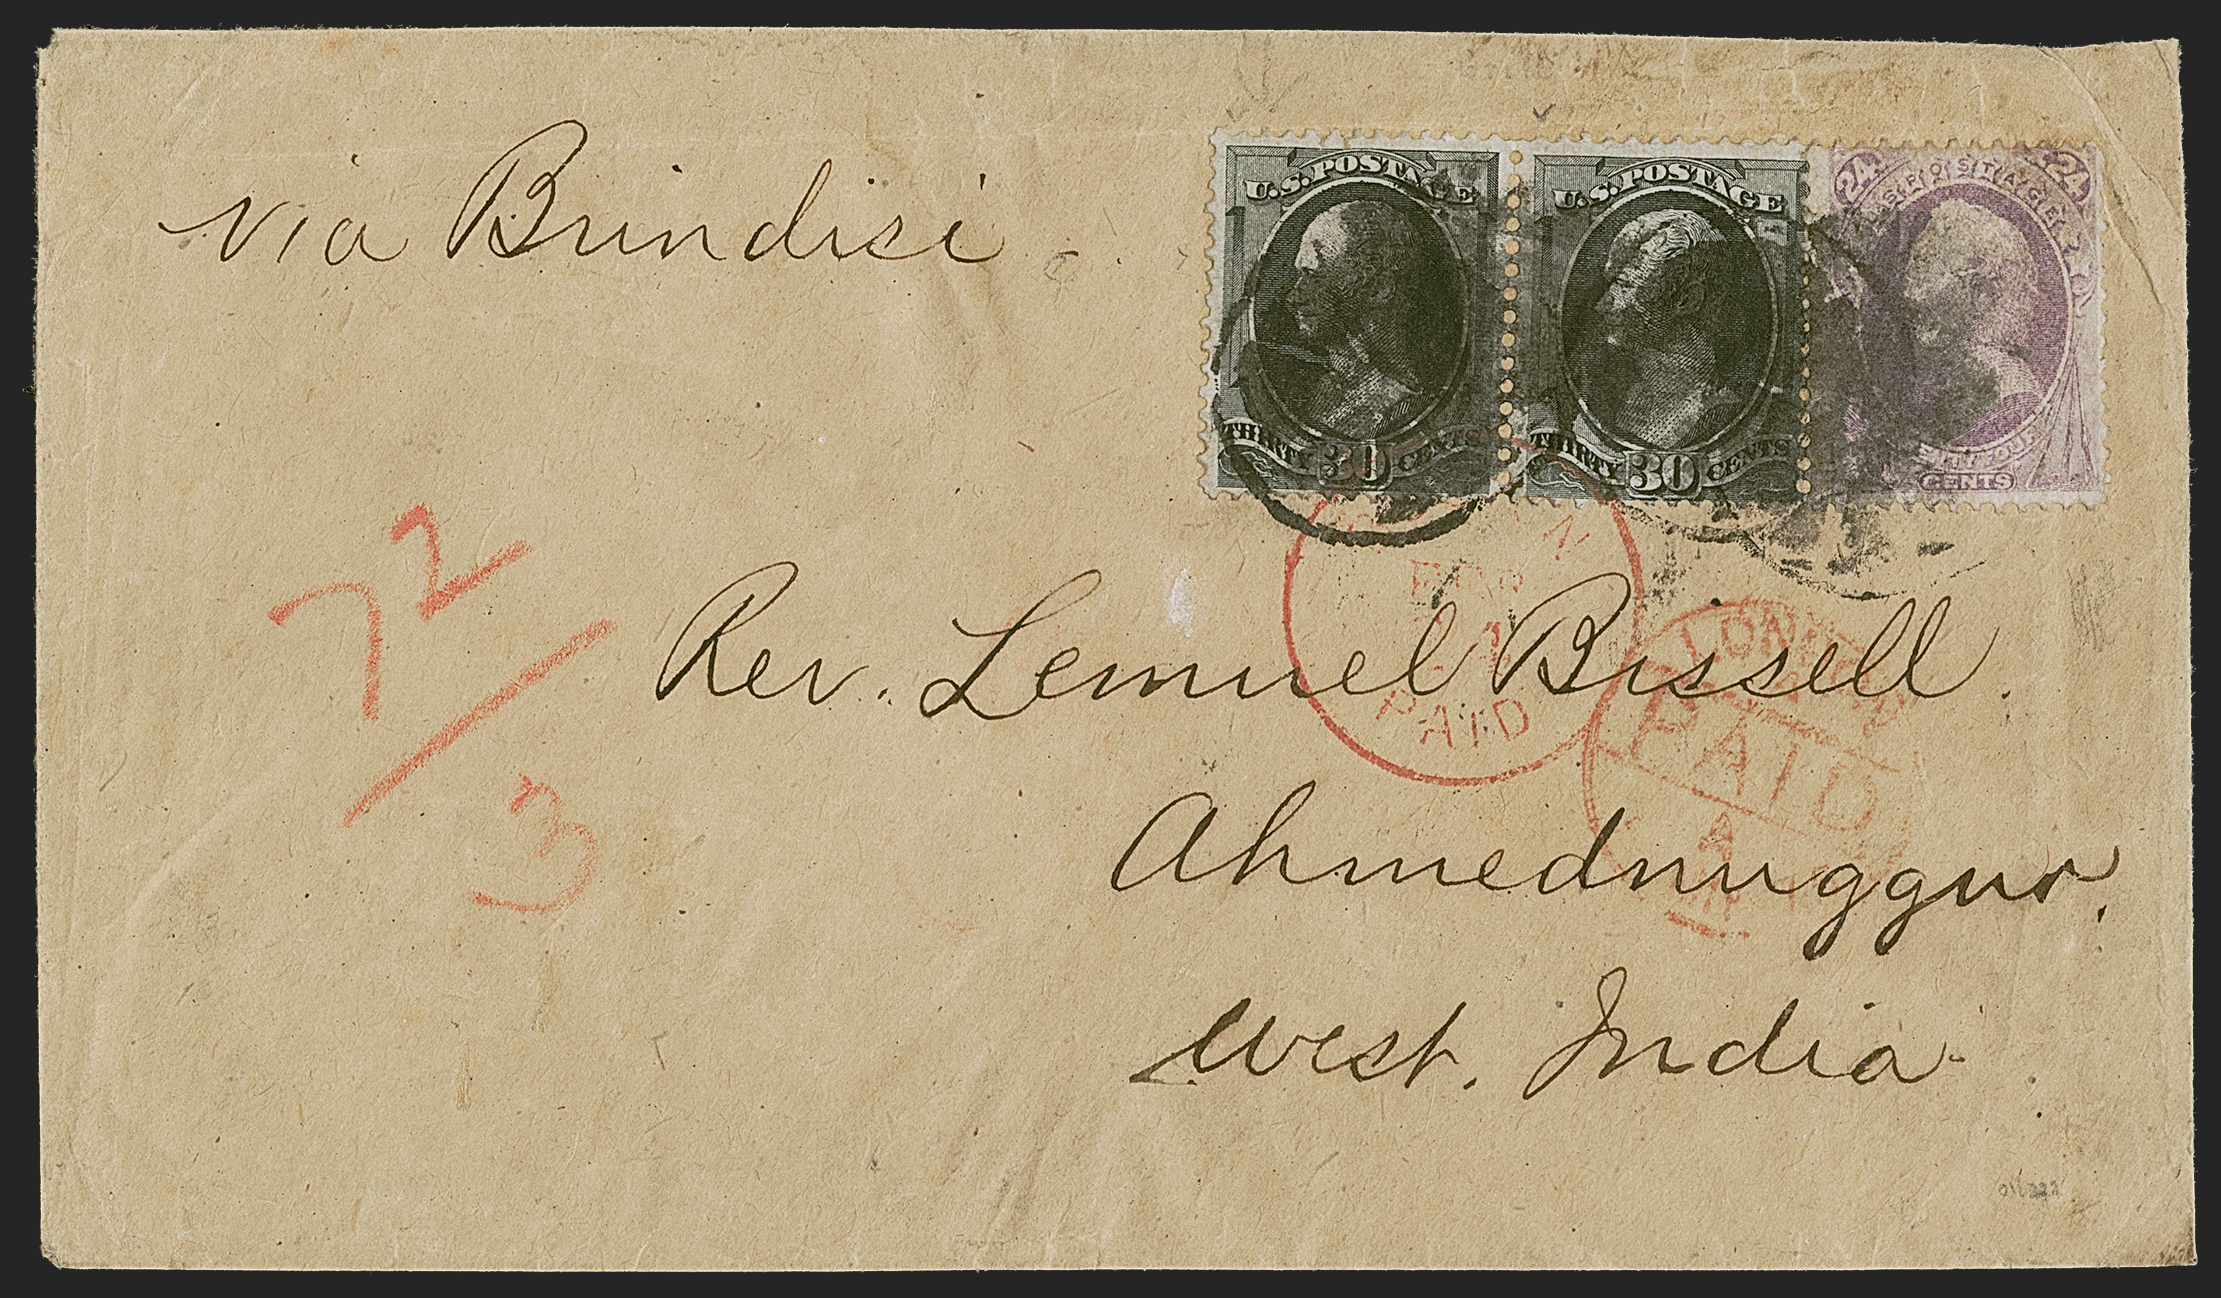 via Brindisi
U.S. POSTAGE
THIRTY 30 CENTS
U.S. POSTAGE
THIRTY 30 CENTS
24 24
U.S. POSTAGE
CENTS
72
3
PAID
Rev. Lemuel Bissell.
LONDON
PAID
Ahmednuggur,
West. India